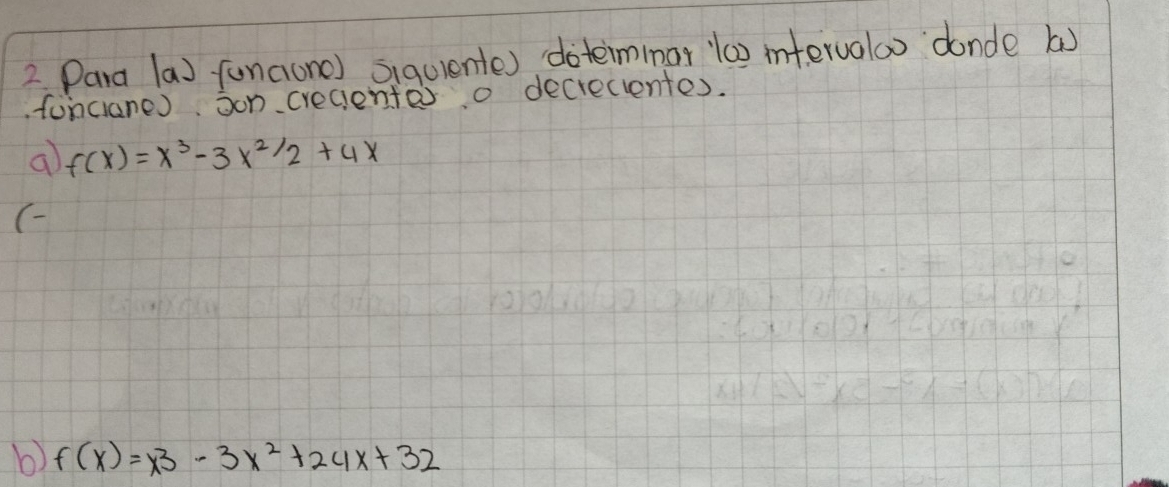 2. Para las funciones siguientes determinar los intervalos donde las
funciones. son crecientes o decrecientes.
a) f(x) = x³ - 3x²/2 + 4x
(-
b) f(x) = x3 - 3x² + 24x + 32